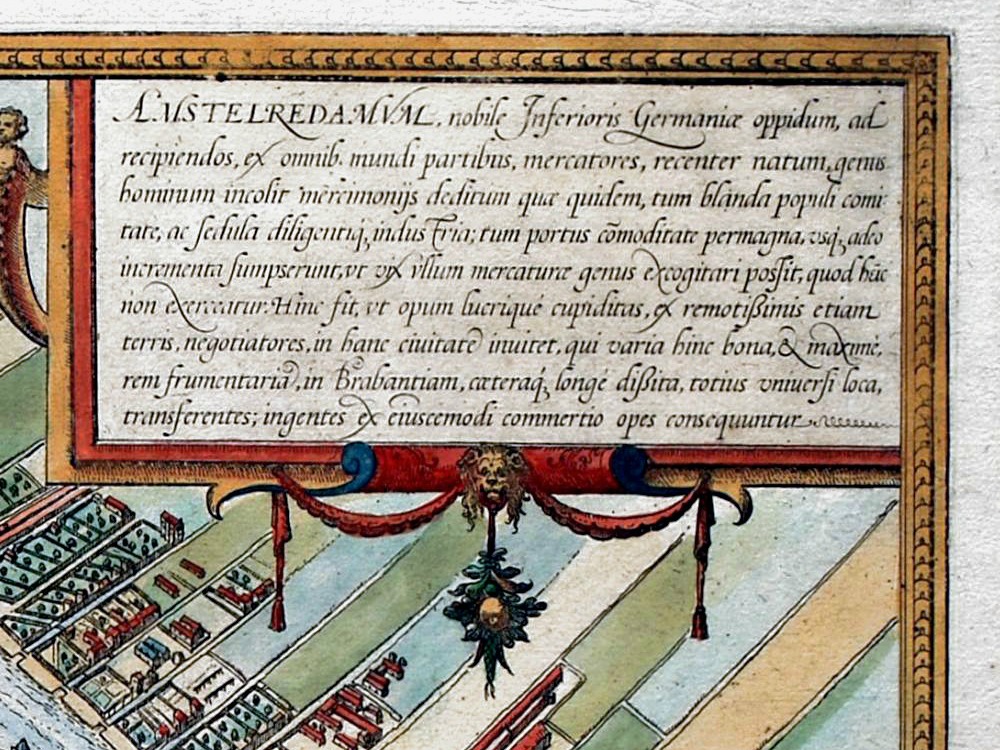 AMSTELREDAMVM, nobile Inferioris Germaniæ oppidum, ad
recipiendos, ex omnib. mundi partibus, mercatores, recenter natum, genus
hominum incolit mercimonijs deditum quæ quidem, tum blanda populi comi
tate, ac sedula diligentiq́; industria; tum portus cõmoditate permagna, vsq́; adeo
incrementa sumpserunt, vt vix vllum mercaturæ genus excogitari possit, quod hîc
non exerceatur. Hinc fit, vt opum lucriqué cupiditas, ex remotißimis etiam
terris, negotiatores, in hanc ciuitatẽ inuitet, qui varia hinc bona, & maximè,
rem frumentariã, in Brabantiam, cæteraq́; longè dißita, totius vniuersi loca,
transferentes; ingentes ex eiuscemodi commertio opes consequuntur